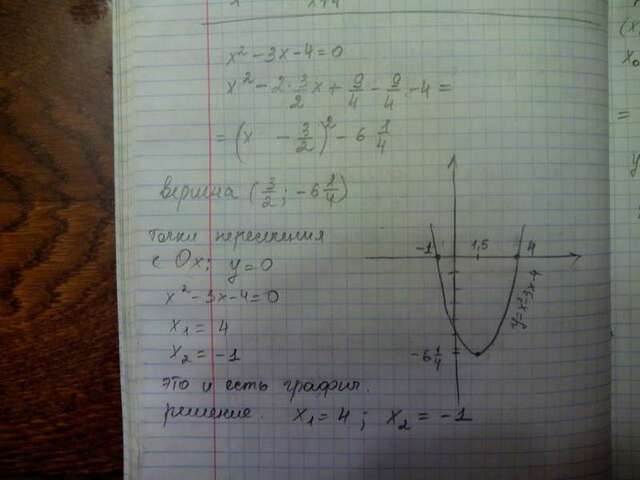 x² - 3x - 4 = 0
x² - 2·3/2 x + 9/4 - 9/4 - 4 =
= (x - 3/2)² - 6 1/4
вершина (3/2; -6 1/4)
точки пересечения
с Ox; y = 0
x² - 3x - 4 = 0
x₁ = 4
x₂ = -1
это и есть графич.
решение. x₁ = 4; x₂ = -1
-1 1,5 4
-6 1/4
y = x² - 3x - 4